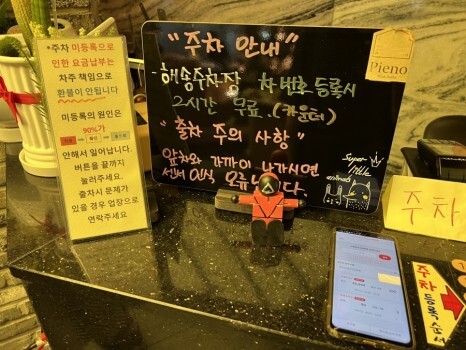 *주차 미등록으로
인한 요금납부는
차주 책임으로
환불이 안됩니다
미등록의 원인은
90%가
안해서 일어납니다.
버튼을 끝까지
눌러주세요.
출차시 문제가
있을 경우 업장으로
연락주세요
"주차 안내"
해송주차장 차번호 등록시
2시간 무료.(카운터)
"출차 주의 사항"
앞차와 가까이 나가시면
센서 인식 오류납니다.
Pieno
Super
animals
주차
주차
등록
순서